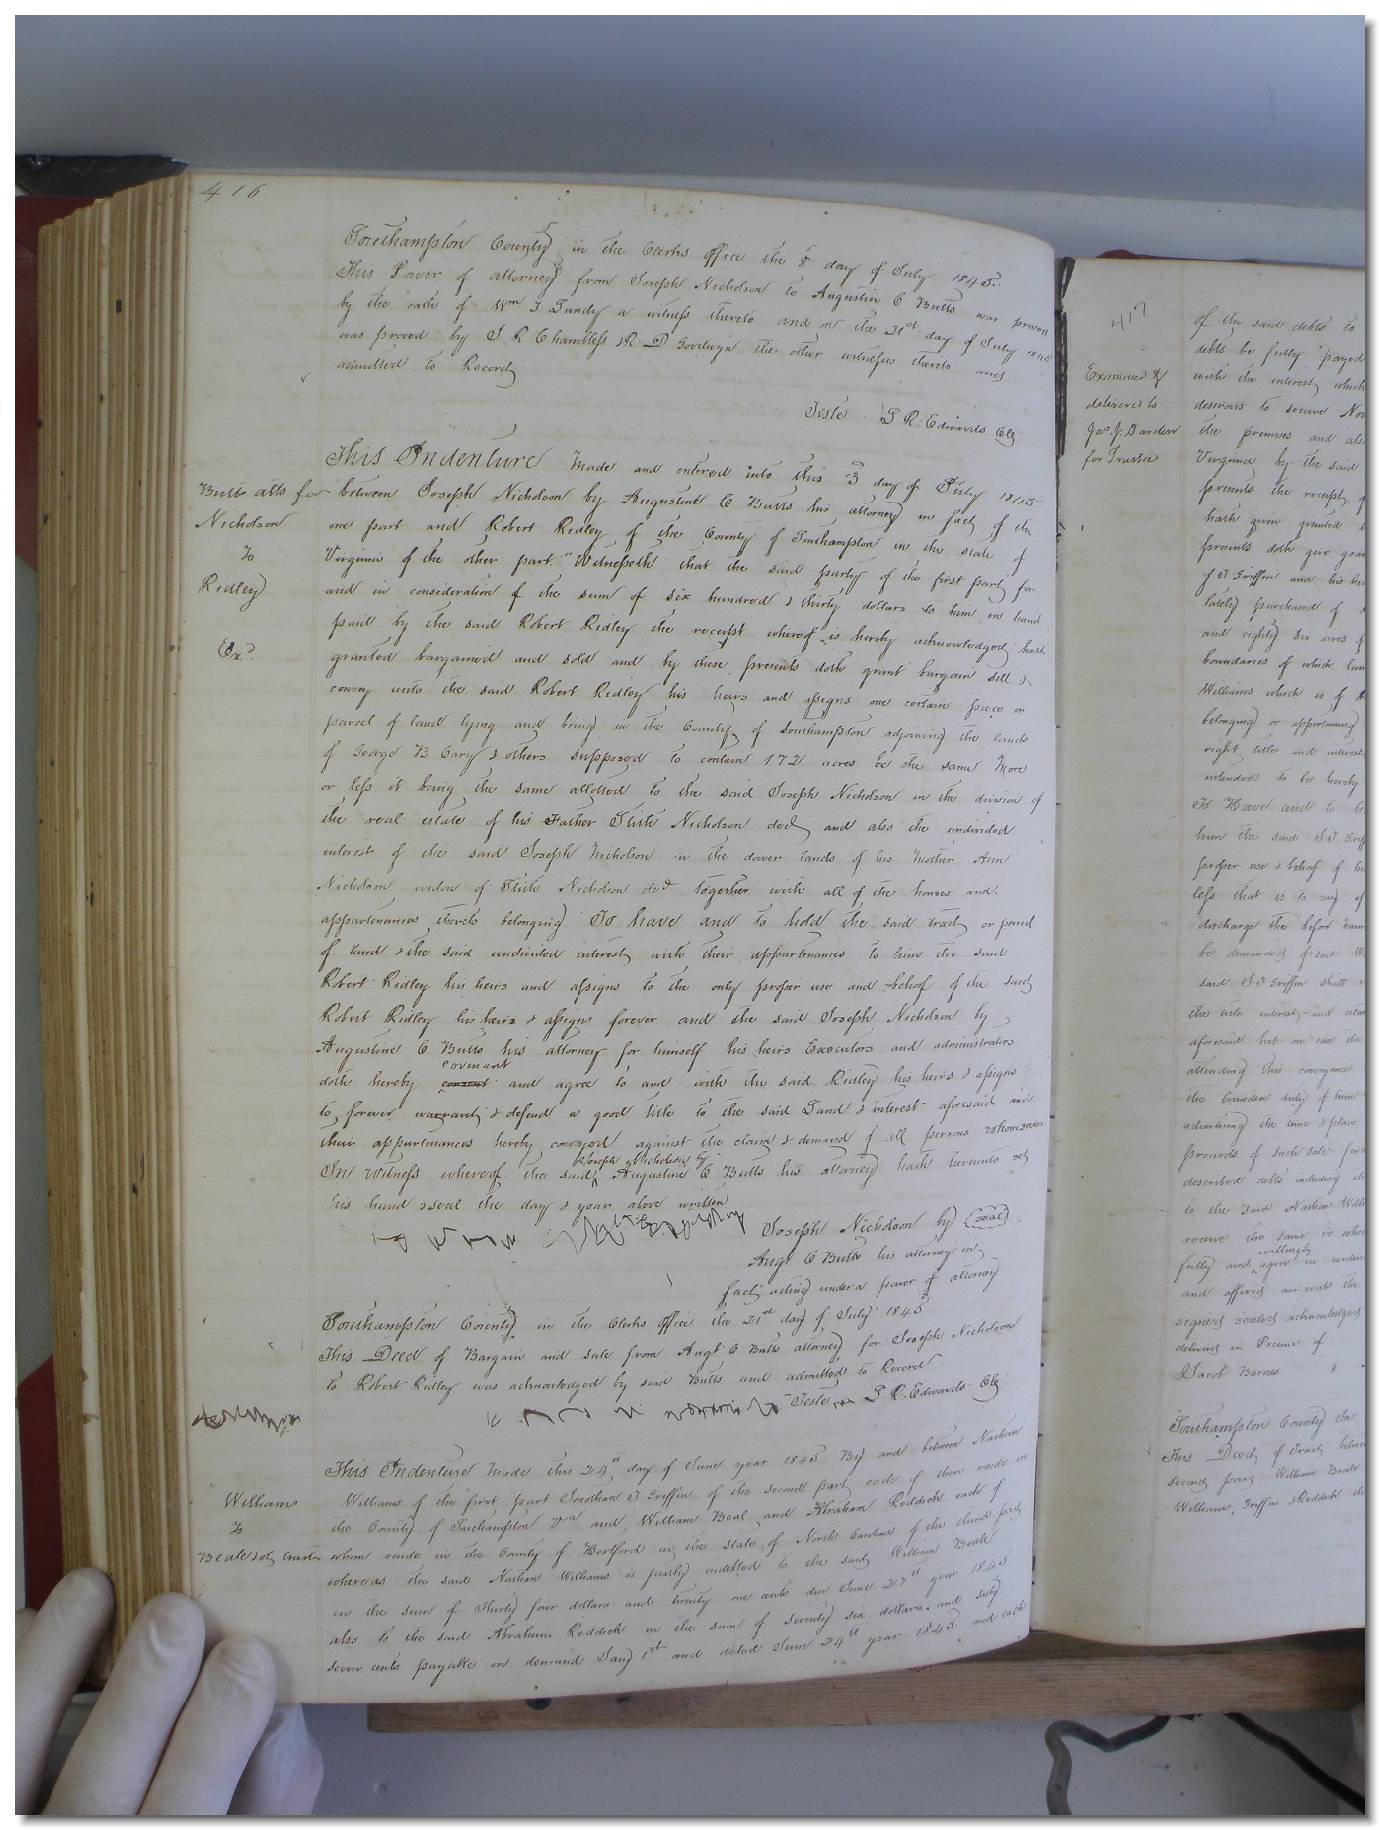 416
Southampton County in the Clerks office the 8 day of July 1845.
This Power of attorney from Joseph Nicholson to Augustin C Butts was proved
by the oath of Wm J Gundy a witness thereto and on the 21st day of July 1845
was proved by S R Chambless & R D Goodwyn the other witnesses thereto and
admitted to Record
Teste L R Edwards Clk
This Indenture Made and entered into this 3 day of July 1845
Butts atto for between Joseph Nicholson by Augustine C Butts his attorney in fact of the
Nicholson one part and Robert Ridley of the County of Southampton in the state of
To Virginia of the other part. "Witnesseth" that the said party of the first part for
Ridley and in consideration of the sum of six hundred & thirty dollars to him in hand
paid by the said Robert Ridley the receipt whereof is hereby acknowledged hath
Exd. granted bargained and sold and by these presents doth grant bargain sell &
convey unto the said Robert Ridley his heirs and assigns one certain piece or
parcel of land lying and being in the County of Southampton adjoining the lands
of George B Cary & others supposed to contain 172 acres be the same More
or less it being the same allotted to the said Joseph Nicholson in the division of
the real estate of his Father Stith Nicholson decd and also the undivided
interest of the said Joseph Nicholson in the dower lands of his Mother Ann
Nicholson widow of Stith Nicholson decd together with all of the houses and
appurtenances thereto belonging To have and to hold the said tract or parcel
of land & the said undivided interest with their appurtenances to him the said
Robert Ridley his heirs and assigns to the only proper use and behoof of the said
Robert Ridley his heirs & assigns forever and the said Joseph Nicholson by
Augustine C Butts his attorney for himself his heirs Executors and administrators
covenant
doth hereby consent and agree to and with the said Ridley his heirs & assigns
to forever warrant & defend a good title to the said Land & interest aforesaid and
their appurtenances hereby conveyed against the claim & demand of all persons whomsoever
Joseph Nicholson by
In witness whereof the said Augustine C Butts his attorney hath hereunto set
his hand & seal the day & year above written
Joseph Nicholson by (seal)
Augt C Butts his attorney in
fact acting under a power of attorney
Southampton County in the Clerks office the 21st day of July 1845
This Deed of Bargain and sale from Augt C Butts attorney for Joseph Nicholson
to Robert Ridley was acknowledged by said Butts and admitted to Record
Teste L. R. Edwards Clk
This Indenture Made this 24th day of June year 1845 By and between Nathan
Williams Williams of the first part Jonathan J Griffin of the second part each of them reside in
To the County of Southampton Va and William Beal and Abraham Reddick each of
Beale & oth trustee whom reside in the County of Hertford in the state of North Carolina of the third part
whereas the said Nathan Williams is justly indebted to the said William Beale
in the sum of Thirty four dollars and twenty one cents due June 27th year 1845
also to the said Abraham Reddick in the sum of seventy six dollars and sixty
seven cents payable on demand Jany 1st and dated June 24th year 1845 and each
417
Examined &
delivered to
Jas. J. Darden
for Trustee
of the said debts to
debts be fully payed
with the interest which
desirous to secure
the premises and also
Virginia by the said
presents the receipt
hath given granted
presents doth give grant
J J Griffin and his
lately purchased of
and eighty six acres
boundaries of which
Williams which is
belonging or appertaining
right title and interest
intended to be hereby
To Have and to
him the said J J
proper use & behoof of
less that is to say
discharge the before
be demanded
said J J Griffin shall
the interest and
aforesaid but in case the
attending this conveyance
the bounden duty of
advertising the time & place
proceeds of such sale
described debts including
to the said Nathan
receive the same
willingly
fully and agree in
and affixed our seals the
signed sealed acknowledged
delivered in Presence of
Jacob Barnes
Southampton County In
This Deed of Trust between
second part William Beale
Williams, Griffin & Reddick